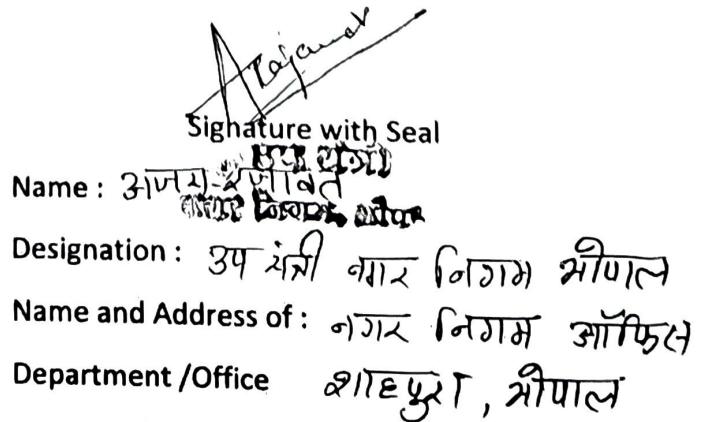 Signature with Seal
उप यंत्री
Name : अजय रजावत
नगर निगम, भोपाल
Designation : उप यंत्री नगर निगम भोपाल
Name and Address of : नगर निगम ऑफिस
Department /Office शाहपुरा, भोपाल